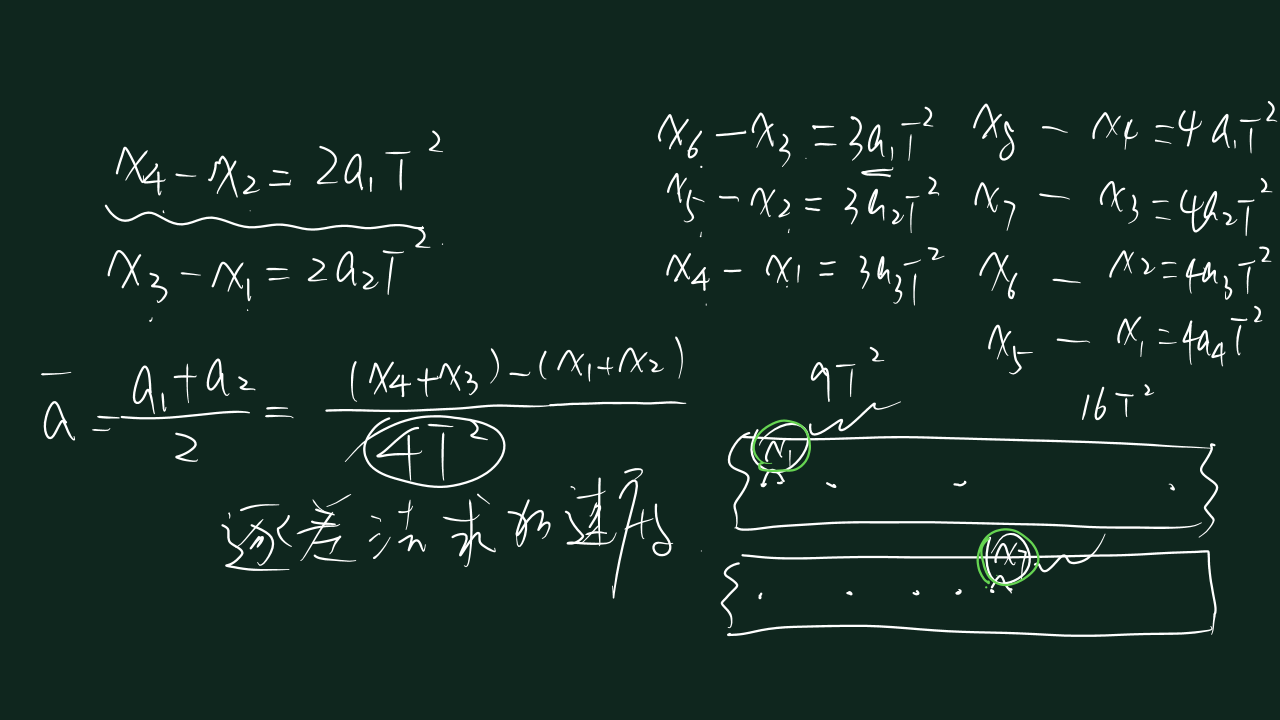 x₄ - x₂ = 2a₁T²
x₃ - x₁ = 2a₂T²
ā = (a₁ + a₂)/2 = ((x₄ + x₃) - (x₁ + x₂))/(4T²)
逐差法求加速度
x₆ - x₃ = 3a₁T²
x₅ - x₂ = 3a₂T²
x₄ - x₁ = 3a₃T²
9T²
x₈ - x₄ = 4a₁T²
x₇ - x₃ = 4a₂T²
x₆ - x₂ = 4a₃T²
x₅ - x₁ = 4a₄T²
16T²
x₁
x₇